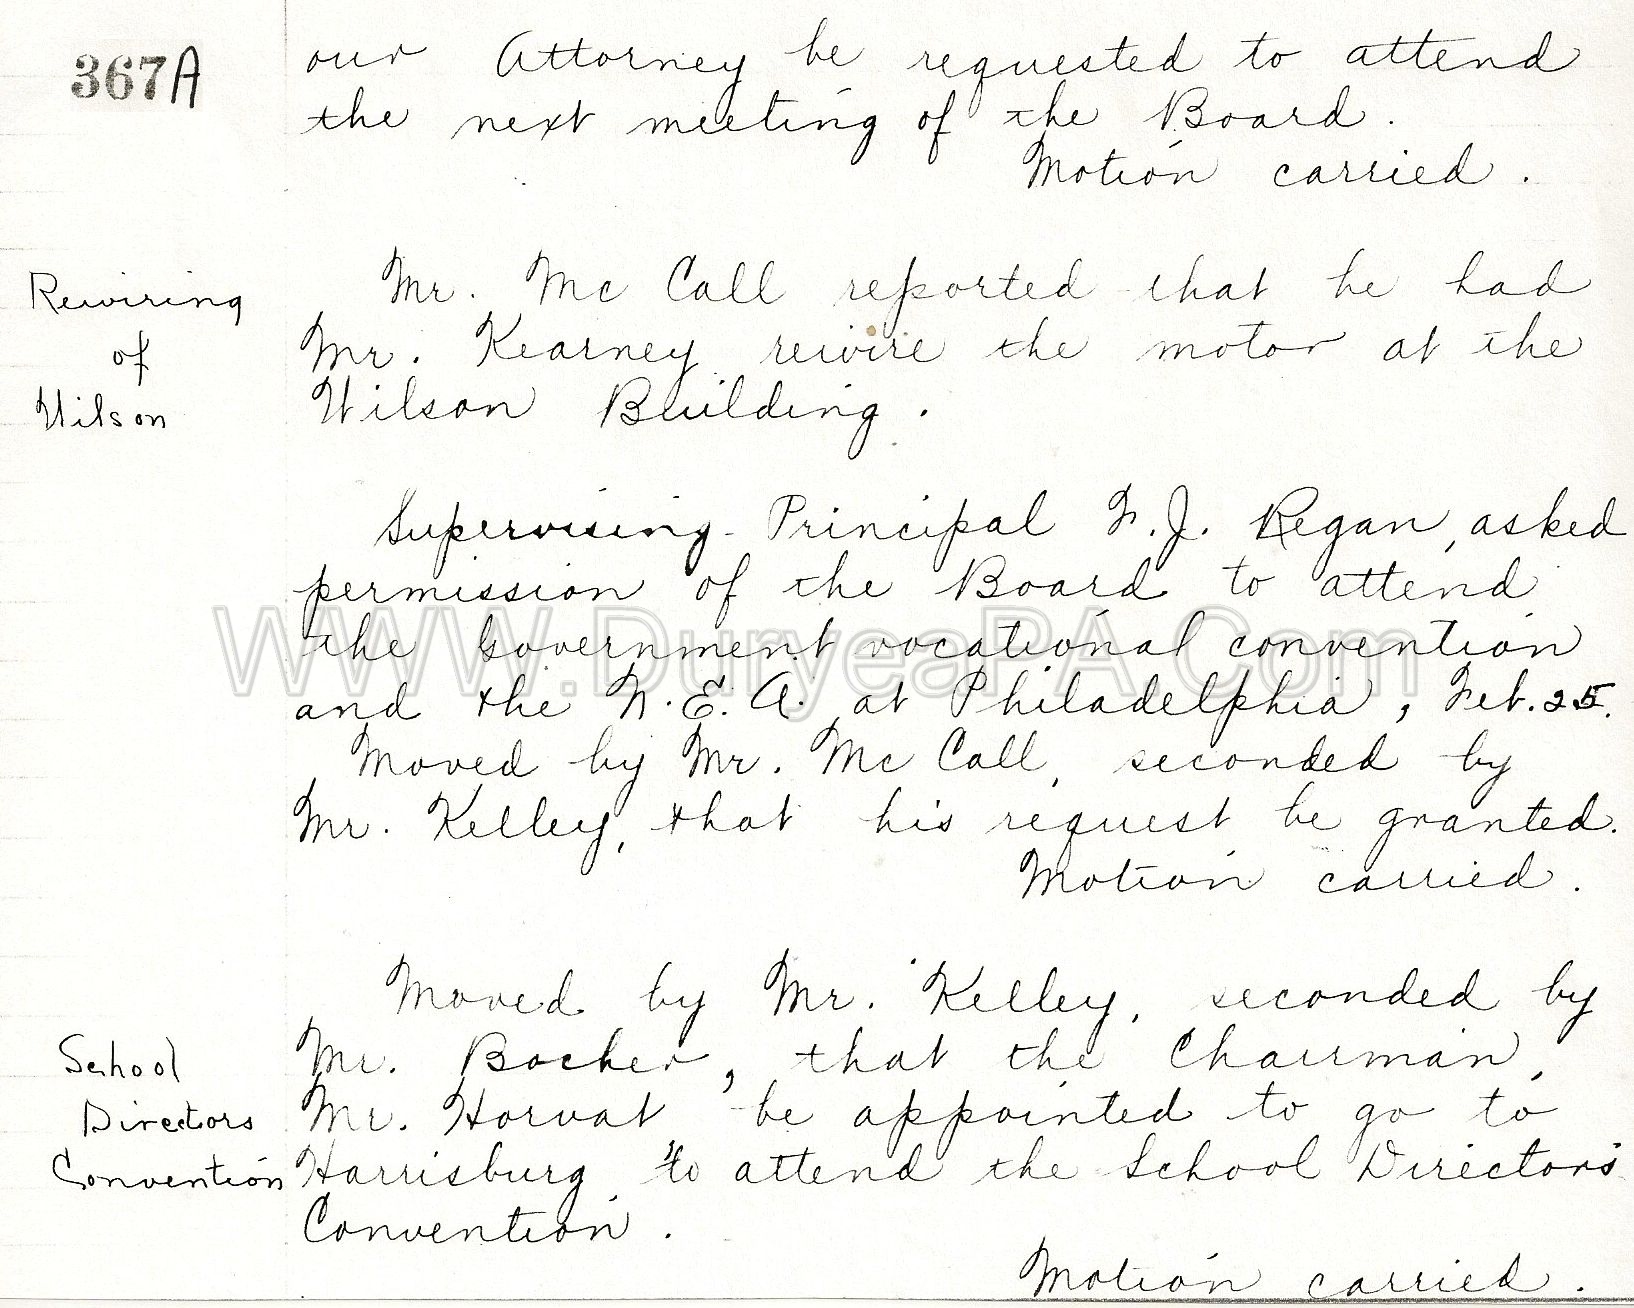 367A
our Attorney be requested to attend
the next meeting of the Board.
Motion carried.
Rewiring
of
Wilson
Mr. Mc Call reported that he had
Mr. Kearney rewire the motor at the
Wilson Building.
Supervising Principal F. J. Regan, asked
permission of the Board to attend
the Government vocational convention
and the N. E. A. at Philadelphia, Feb. 25.
WWW.DuryeaPA.Com
Moved by Mr. Mc Call, seconded by
Mr. Kelley, that his request be granted.
Motion carried.
School
Directors
Convention
Moved by Mr. Kelley, seconded by
Mr. Bocher, that the Chairman,
Mr. Horvat be appointed to go to
Harrisburg, to attend the School Directors
Convention.
Motion carried.